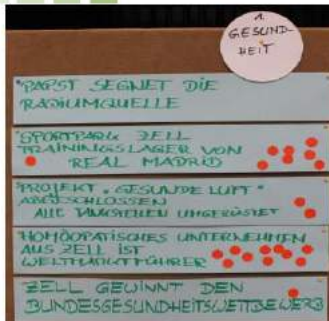 1.
GESUND-
HEIT
PAPST SEGNET DIE
RADIUMQUELLE
SPORTPARK ZELL
TRAININGSLAGER VON
REAL MADRID
PROJEKT "GESUNDE LUFT"
ABGESCHLOSSEN
ALLE TANKSTELLEN UMGERÜSTET
HOMÖOPATISCHES UNTERNEHMEN
AUS ZELL IST
WELTMARKTFÜHRER
ZELL GEWINNT DEN
BUNDESGESUNDHEITSWETTBEWERB